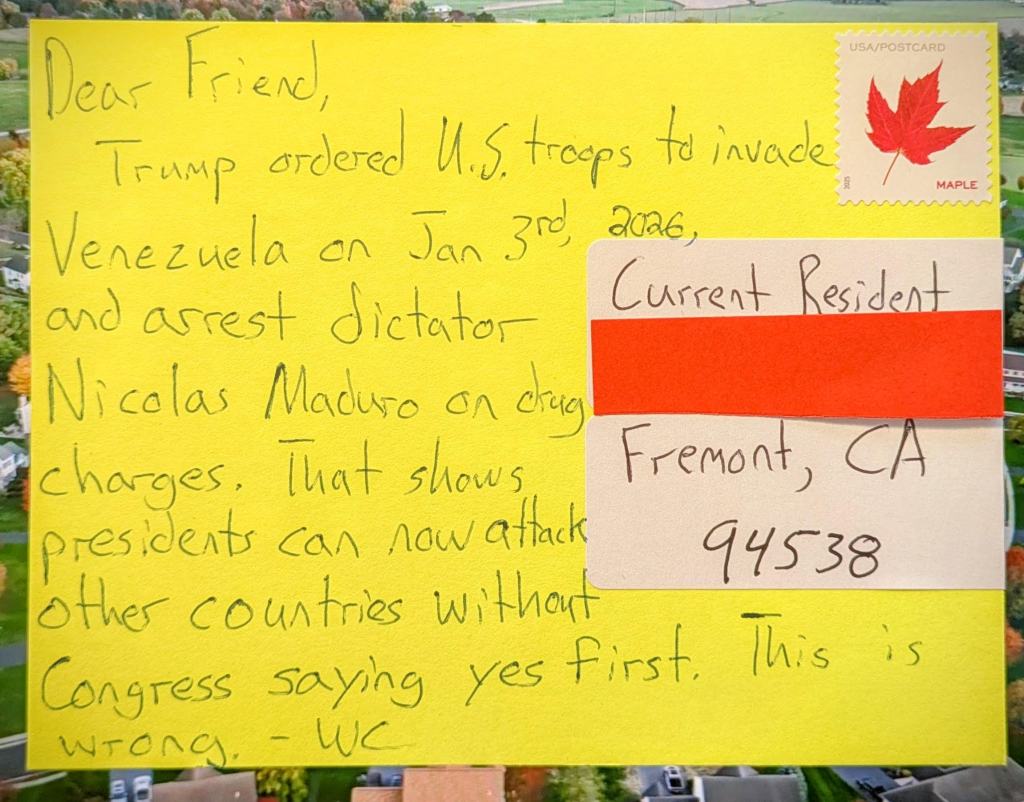 Dear Friend,
Trump ordered U.S. troops to invade
Venezuela on Jan 3rd, 2026,
and arrest dictator
Nicolas Maduro on drug
charges. That shows
presidents can now attack
other countries without
Congress saying yes first. This is
wrong. - WC
USA/POSTCARD
2025
MAPLE
Current Resident
Fremont, CA
94538